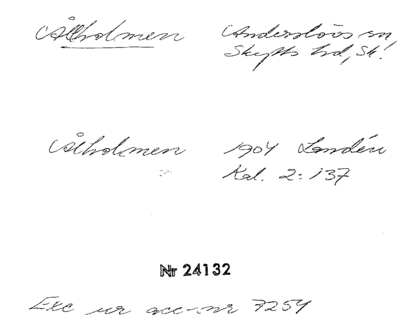 Ålholmen Anderslövs sn,
Skytts hd, Sk!
Ålholmen 1904 Landén
Kal. 2:137
Nr 24132
Exc ur acc-nr 7254